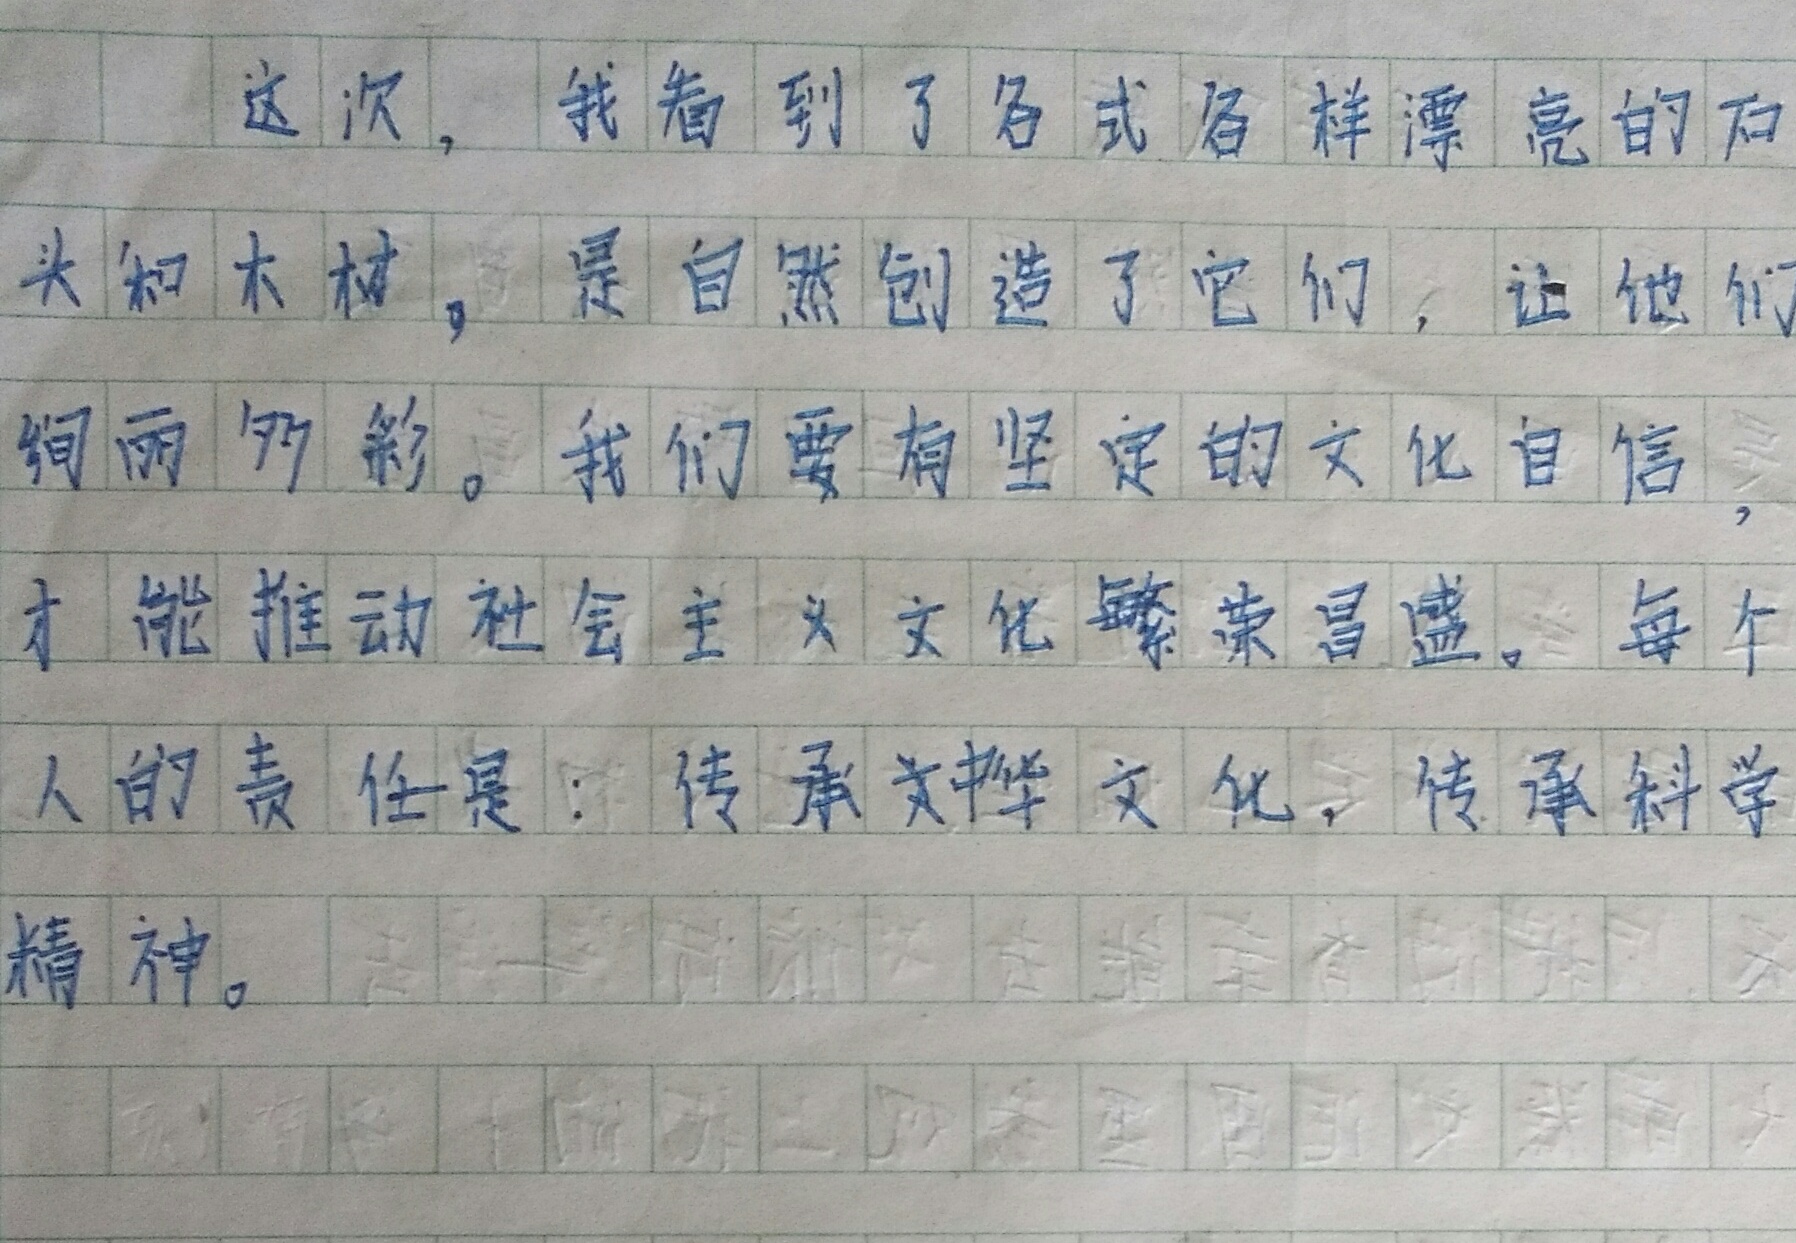 这次，我看到了各式各样漂亮的石
头和木材。是自然创造了它们，让他们
绚丽多彩。我们要有坚定的文化自信，
才能推动社会主义文化繁荣昌盛。每个
人的责任是：传承中华文化，传承科学
精神。